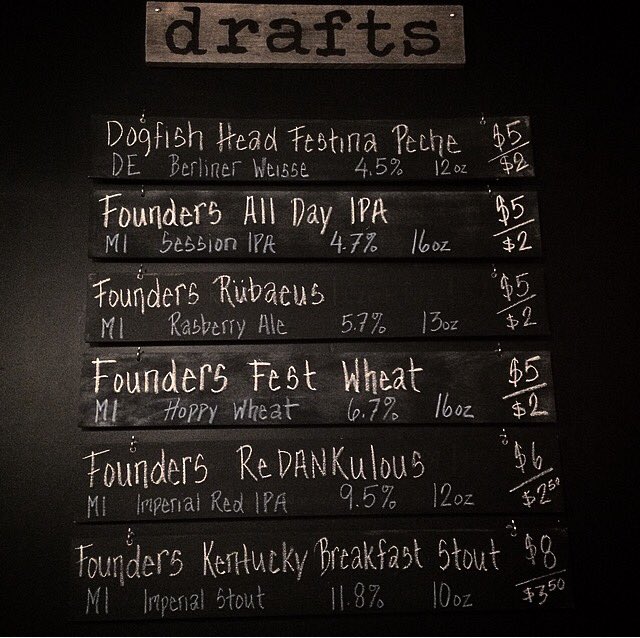 drafts
Dogfish Head Festina Peche $5
DE Berliner Weisse 4.5% 12oz $2
Founders All Day IPA $5
MI Session IPA 4.7% 16oz $2
Founders Rübaeus $5
MI Rasberry Ale 5.7% 13oz $2
Founders Fest Wheat $5
MI Hoppy Wheat 6.7% 16oz $2
Founders ReDANKulous $6
MI Imperial Red IPA 9.5% 12oz $2.50
Founders Kentucky Breakfast Stout $8
MI Imperial Stout 11.8% 10oz $3.50